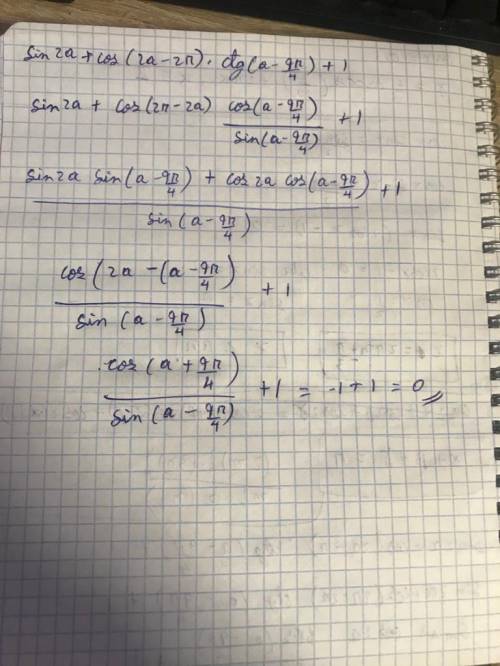 sin2a + cos(2a-2π) · ctg(a - 9π/4) + 1
sin2a + cos(2π-2a) cos(a - 9π/4) / sin(a - 9π/4) + 1
sin2a sin(a - 9π/4) + cos2a cos(a - 9π/4) / sin(a - 9π/4) + 1
cos(2a - (a - 9π/4) / sin(a - 9π/4) + 1
cos(a + 9π/4) / sin(a - 9π/4) + 1 = -1 + 1 = 0